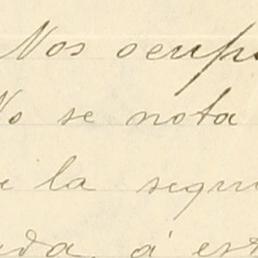 Nos ocup
No se nota
e la segu
da, á est